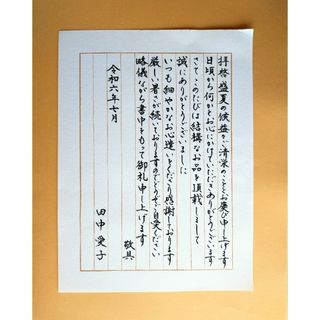 拝啓 盛夏の候益々ご清栄のこととお慶び申し上げます
日頃から何かとお心にかけていただきありがとうございます
さてこのたびは結構なお品を頂戴しまして
誠にありがとうございました
いつも細やかなお心遣いをくださり感謝しております
厳しい暑さが続いておりますのでどうぞご自愛ください
略儀ながら書中をもって御礼申し上げます
敬具
令和六年七月
田中愛子